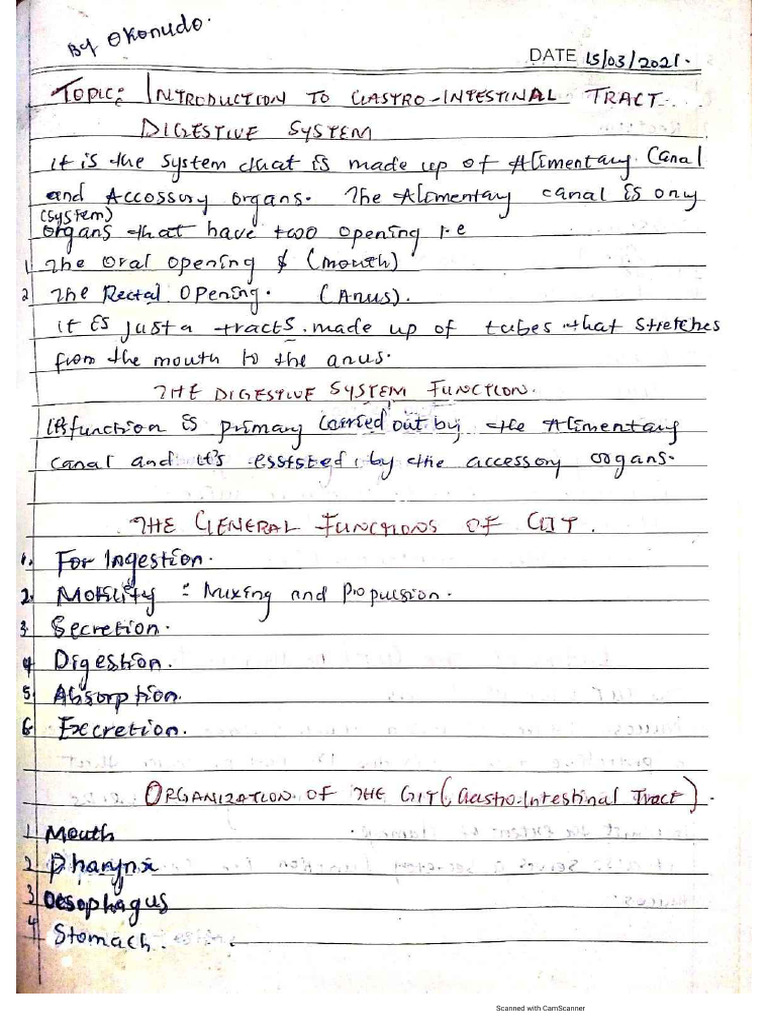 By Okonudo.
DATE 15/03/2021.
TOPIC: INTRODUCTION TO GASTRO-INTESTINAL TRACT...
DIGESTIVE SYSTEM
it is the system that is made up of Alimentary Canal
and Accossory organs. The Alimentary canal is only
(system)
organs that have two opening i.e
1 The Oral opening & (mouth)
2 The Rectal Opening. (Anus).
it is just a tracts made up of tubes that stretches
from the mouth to the anus.
THE DIGESTIVE SYSTEM FUNCTION.
Its function is primary carried out by the Alimentary
canal and it's esststed by the accessory organs.
THE GENERAL FUNCTIONS OF GIT.
1. For Ingestion.
2. Motility : Mixing and Propulsion.
3. Secretion.
4 Digestion.
5. Absorption.
6 Excretion.
ORGANIZATION OF THE GIT (Gastro-Intestinal Tract).
1 Mouth
2 Pharynx
3 Oesophagus
4 Stomach.
Scanned with CamScanner